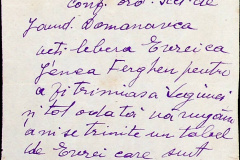 conf. ord. Seci de
Jand. Domanovca
veti libera Evreica
Jenea Ferghen pentru
a fi trimiasa Legiunei
si tot odată vă rugăm
a ni se trimite un tabel
de Evrei care sunt